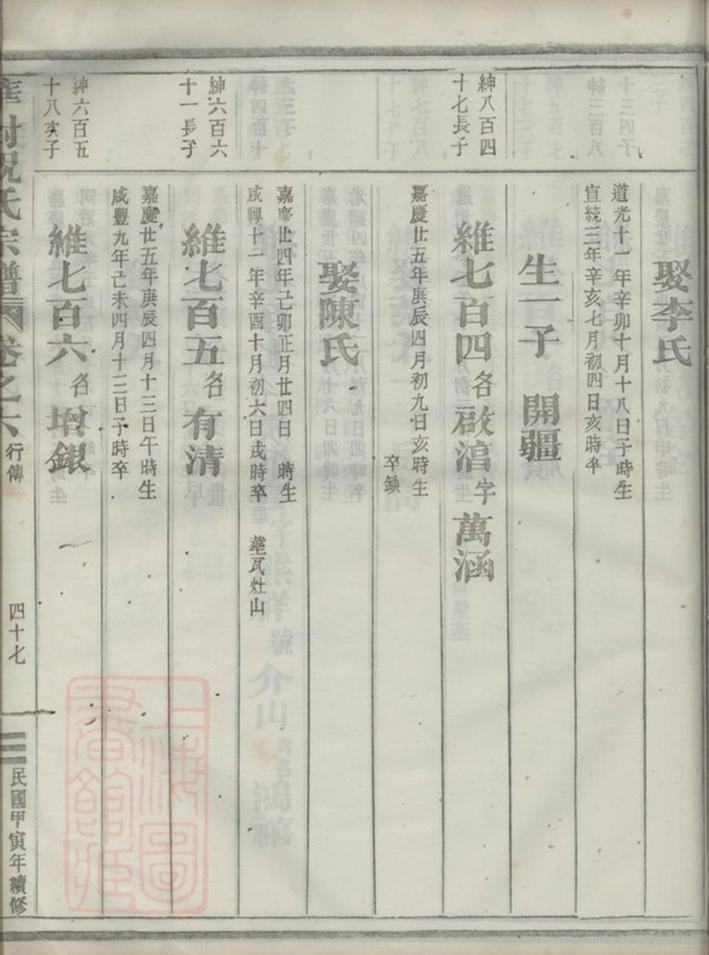 娶李氏
道光十一年辛卯十月十八日子時生
宣統三年辛亥七月初四日亥時卒
生一子 開疆
紳八百四
十七長子
維七百四 名 啟湻 字 萬涵
嘉慶廿五年庚辰四月初九日亥時生
卒缺
娶陳氏
嘉慶廿四年己卯正月廿四日 時生
咸豐十一年辛酉十月初六日戌時卒 塟瓦灶山
紳六百六
十一長子
維七百五 名 有清
嘉慶廿五年庚辰四月十三日午時生
咸豐九年己未四月十三日子時卒
紳六百五
十八亥子
維七百六 名 增銀
村祝氏宗譜 卷之六 行傳 四十七 民國甲寅年續修
上海圖書館藏